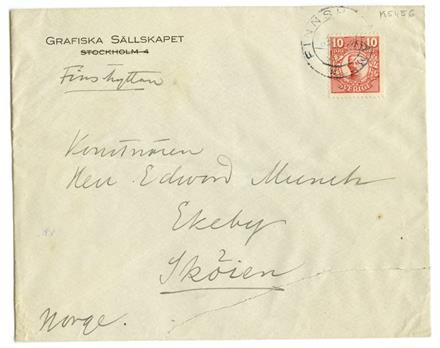 K5456
GRAFISKA SÄLLSKAPET
STOCKHOLM 4
Finshyttan
10 10
SVERIGE
FINNS
Konstnären
Herr Edvard Munch
Ekeby
Sköien
Norge.